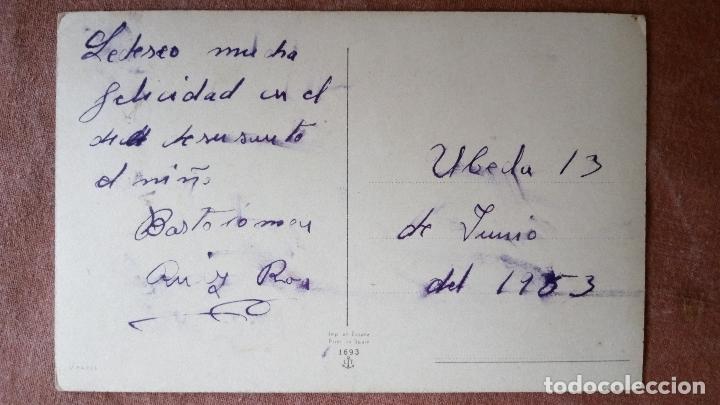 Le deseo mucha
felicidad en el
de su santo
el niño
Bartolome
Ruiz
Ubeda 13
de Junio
del 1953
Imp. en España
Print. in Spain
1693
todocoleccion
todocoleccion.net